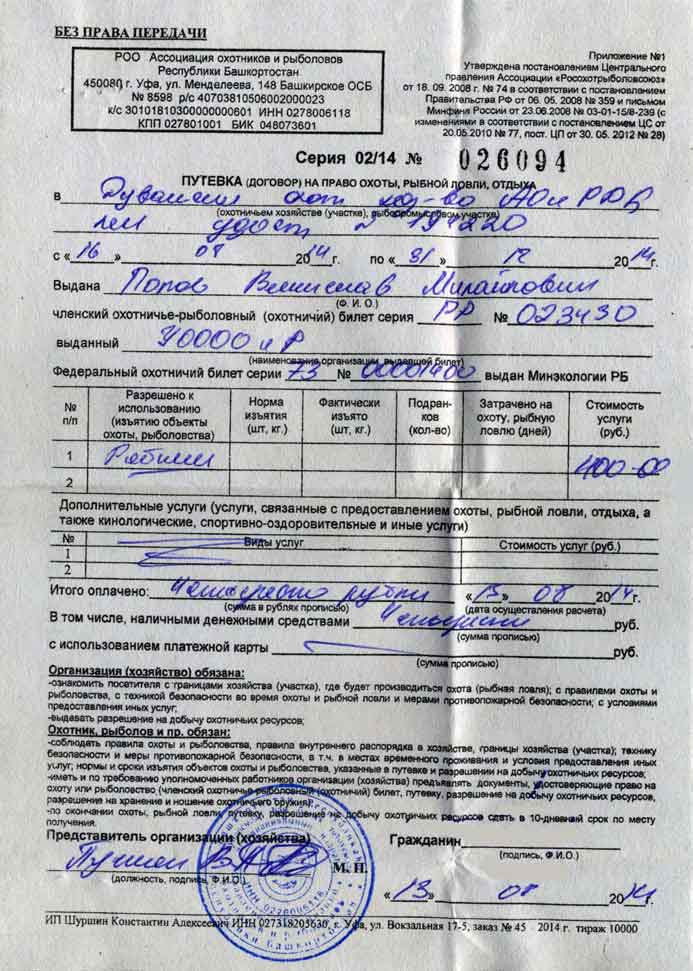 БЕЗ ПРАВА ПЕРЕДАЧИ
РОО Ассоциация охотников и рыболовов
Республики Башкортостан
450080 г. Уфа, ул. Менделеева, 148 Башкирское ОСБ
№ 8598 р/с 40703810506002000023
к/с 30101810300000000601 ИНН 0278006118
КПП 027801001 БИК 048073601
Приложение №1
Утверждена постановлением Центрального
правления Ассоциации «Росохотрыболовсоюз»
от 18. 09. 2008 г. № 74 в соответствии с постановлением
Правительства РФ от 06. 05. 2008 № 359 и письмом
Минфина России от 23.06.2008 № 03-01-15/8-239 (с
изменениями в соответствии с постановлением ЦС от
20.05.2010 № 77, пост. ЦП от 30. 05. 2012 № 28)
Серия 02/14 № 026094
ПУТЕВКА (ДОГОВОР) НА ПРАВО ОХОТЫ, РЫБНОЙ ЛОВЛИ, ОТДЫХА
в
(охотничьем хозяйстве (участке), рыбопромысловом участке)
с «16» 08 2014г. по «31» 12 2014г.
Выдана Попов Михайлович
(Ф. И. О.)
членский охотничье-рыболовный (охотничий) билет серия РР № 023430
выданный УОООиР
(наименование организации, выдавшей билет)
Федеральный охотничий билет серии 73 № выдан Минэкологии РБ
№ п/п
Разрешено к использованию (изъятию объекты охоты, рыболовства)
Норма изъятия (шт, кг.)
Фактически изъято (шт, кг.)
Подранков (кол-во)
Затрачено на охоту, рыбную ловлю (дней)
Стоимость услуги (руб.)
1 Рябчик 400-00
2
Дополнительные услуги (услуги, связанные с предоставлением охоты, рыбной ловли, отдыха, а
также кинологические, спортивно-оздоровительные и иные услуги)
№ Виды услуг Стоимость услуг (руб.)
1
2
Итого оплачено: Четыреста рублей «13» 08 2014г.
(сумма в рублях прописью) (дата осуществления расчета)
В том числе, наличными денежными средствами Четыреста руб.
(сумма прописью)
с использованием платежной карты руб.
(сумма прописью)
Организация (хозяйство) обязана:
-ознакомить посетителя с границами хозяйства (участка), где будет производиться охота (рыбная ловля); с правилами охоты и
рыболовства, с техникой безопасности во время охоты и рыбной ловли и мерами противопожарной безопасности; с условиями
предоставления иных услуг;
-выдавать разрешение на добычу охотничьих ресурсов;
Охотник, рыболов и пр. обязан:
-соблюдать правила охоты и рыболовства, правила внутреннего распорядка в хозяйстве, границы хозяйства (участка); технику
безопасности и меры противопожарной безопасности, в т.ч. в местах временного проживания и условия предоставления иных
услуг; нормы и сроки изъятия объектов охоты и рыболовства, указанные в путевке и разрешении на добычу охотничьих ресурсов;
-иметь и по требованию уполномоченных работников организации (хозяйства) предъявлять документы, удостоверяющие право на
охоту или рыболовство (членский охотничье-рыболовный (охотничий) билет, путевку, разрешение на добычу охотничьих ресурсов,
разрешение на хранение и ношение охотничьего оружия).
-по окончании охоты, рыбной ловли путевку, разрешение на добычу охотничьих ресурсов сдать в 10-дневный срок по месту
получения.
Представитель организации (хозяйства) Гражданин
М. П.
(должность, подпись, Ф.И.О.) (подпись, Ф.И.О.)
«13» 08 2014
ИП Шуршин Константин Алексеевич ИНН 027318203630, г. Уфа, ул. Вокзальная 17-5, заказ № 45 - 2014 г. тираж 10000